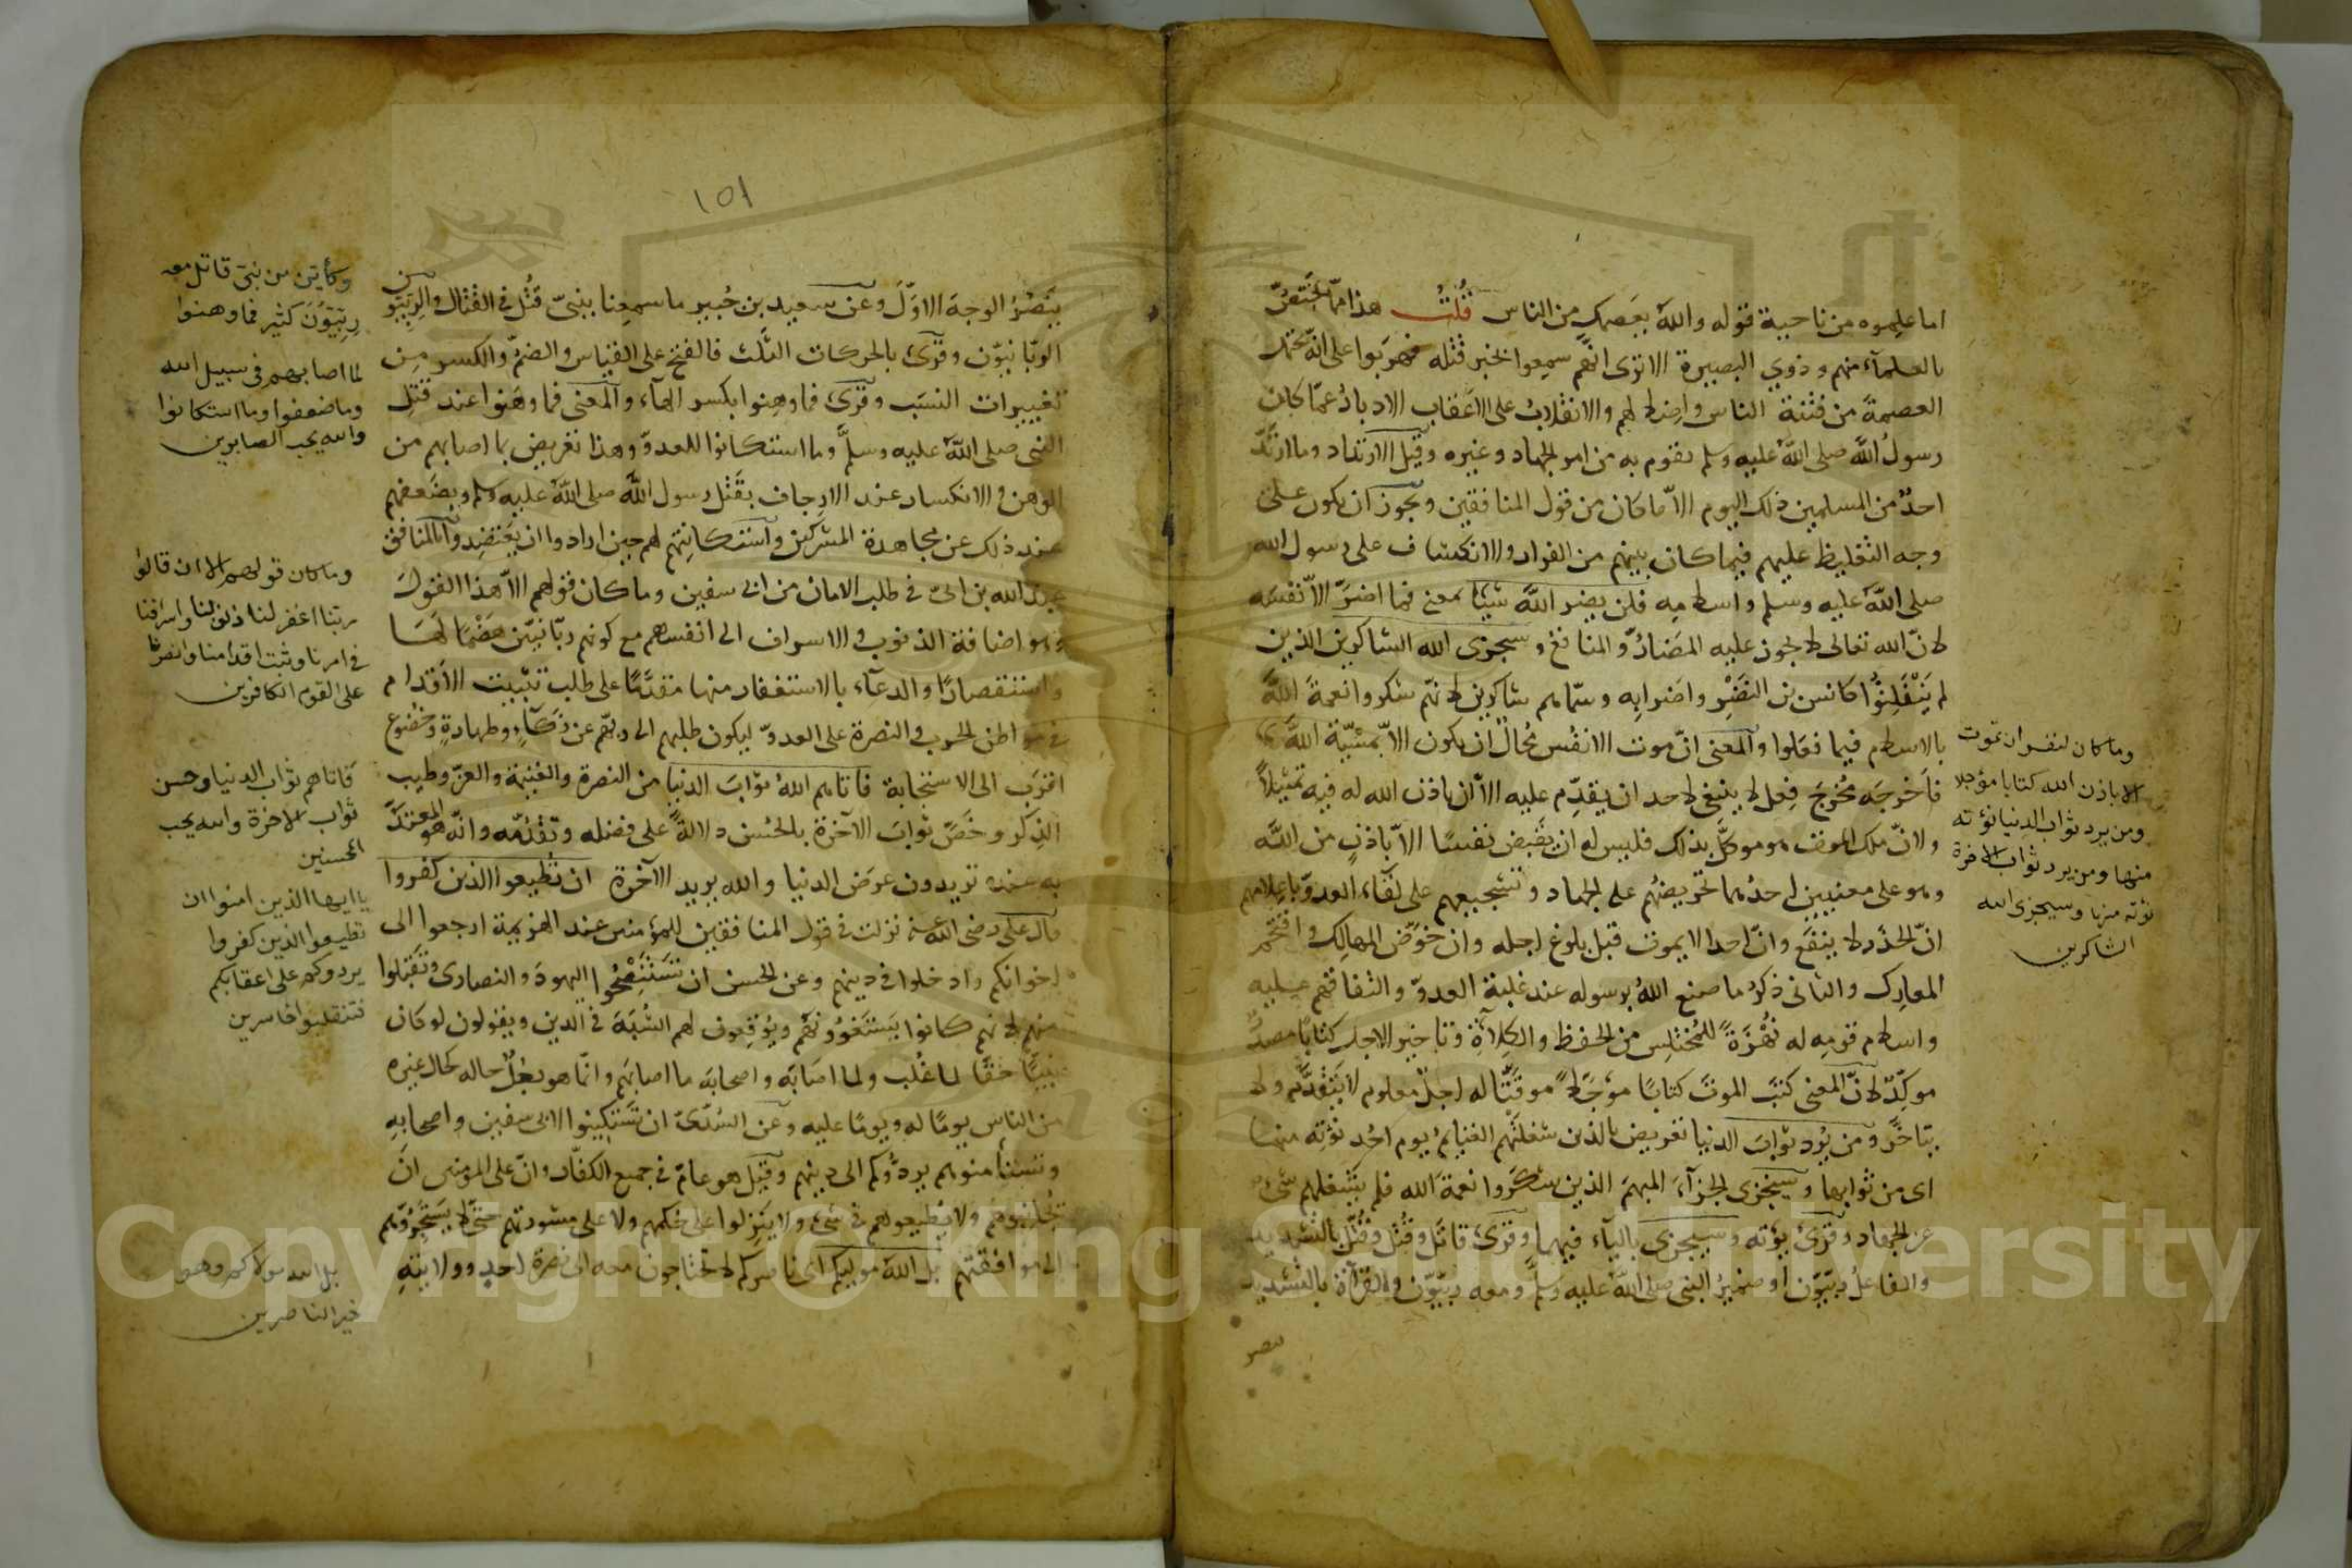 اما علموه من ناحية قوله والله يعصمك من الناس قُلتُ هذا ممّا يختصّ
بالعلمآء منهم وذوي البصيرة الا ترى انّهم سمعوا بخبر قتله فهربوا على انّه يحتمل
العصمة من فتنة الناس واضلالهم والانقلاب على الاعقاب الادبار عمّا كان
رسول الله صلى الله عليه وسلم يقوم به من امر الجهاد وغيره وقيل الارتداد وما ارتدّ
احدٌ من المسلمين ذلك اليوم الاّ ما كان من قول المنافقين ويجوز ان يكون على
وجه التغليظ عليهم فيما كان بينهم من الفرار والانكشاف على رسول الله
صلى الله عليه وسلم واسلامه فلن يضر الله شيئا بمعنى فما اضرّ الاّ نفسه
لانّ الله تعالى لا يجوز عليه المضارّ والمنافع وسيجزى الله الشاكرين الذين
لم يَنْقَلِبُوا كانس بن النضر واضرابه وسمّاهم شاكرين لانهم شكروا نعمة الله
بالاسلام فيما فعلوا والمعنى انّ موت الانفس مُحالٌ ان يكون الاّ بمشيّة الله
فاَخرجَه مُخرجَ فِعل لا ينبغى لاحد ان يقدِم عليه الاّ ان ياذن الله له فيه تمثيلاً
ولانّ ملك الموت هو موكّل بذلك فليس له ان يقبض نفسًا الاّ باذنٍ من الله
وهو على معنيين احدهما تحريضهم على الجهاد وتشجيعهم على لقآء العدوّ باعلامهم
انّ الحذر لا ينفع وانّ احدا لا يموت قبل بلوغ اجله وان خوّض المهالك واقتحم
المعارك والثانى ذكر ما صنع الله برسوله عند غلبة العدوّ والتفافهم عليه
واسلام قومه له نُهْزَةً للمُختلِس من الحفظ والكِلاءَةِ وتاخير الاجل كتابًا مصدرٌ
موكِّدٌ لانّ المعنى كتبَ الموتَ كتابًا مؤجّلا موقّتًا له اجلٌ معلوم لا يتقدّم ولا
يتاخّر ومن يُرد ثوابَ الدنيا تعريض بالذين شغلتهم الغنايم يوم احُد نؤته منها
اى من ثوابها وسيجزى الجزآءَ المبهمَ الذين شكروا نعمةَ الله فلم يشغلهم شئ
عن الجهاد وقرئ يؤته وسيجزى باليآء فيهما وقرئ قاتَل وقُتِل وقُتِّل بالتشديد
والفاعلُ ربّيّون او ضميرُ النبى صلى الله عليه وسلم ومعه ربّيّون والقرآة بالتشديد
تنصر
وما كان لنفس ان تموت
الا باذن الله كتابا مؤجلا
ومن يرد ثواب الدنيا نؤته
منها ومن يرد ثواب الاخرة
نؤته منها وسيجزى الله
الشاكرين
١٥١
يَنصُرُ الوجهَ الاوّلَ وعن سعيد بن جُبير ما سمعنا بنبىّ قُتل فى القتال والربّيّون
الربّانيّون وقرئ بالحركات الثلث فالفتح على القياس والضمّ والكسر مِن
تغييرات النسب وقرئ فما وهِنوا بكسر الهآء والمعنى فما وهنوا عند قتل
النبى صلى الله عليه وسلّم وما استكانوا للعدوّ وهذا تعريض بما اصابهم من
الوهن والانكسار عند الارجاف بقتل رسول الله صلى الله عليه وسلم وبضعفهم
عند ذلك عن مجاهدة المشركين واستكانتهم لهم حين ارادوا ان يعتضدوا بالمنافق
عبد الله بن ابىّ فى طلب الامان من ابى سفين وما كان قولهم الاّ هذا القولَ
وهو اضافة الذنوب والاسراف الى انفسهم مع كونهم ربّانيّين هَضْمًا لها
واستقصارًا والدعآء بالاستغفار منها مقدَّمًا على طلب تثبيت الاقدام
فى مواطن الحرب والنصرة على العدوّ ليكون طلبهم الى ربّهم عن ذكآءٍ وطهارةٍ وخضوع
اقربَ الى الاستجابة فاتاهم الله ثوابَ الدنيا من النصرة والغنيمة والعزّ وطيب
الذِكر وخصّ ثوابَ الآخرة بالحُسن دلالةً على فضله وتقدّمه وانّه هو المعتدّ
به عنده تريدون عرَض الدنيا والله يريد الآخرة ان تُطيعوا الذين كفروا
قال على رضى الله عنه نزلت فى قول المنافقين للمؤمنين عند الهزيمة ارجعوا الى
اخوانكم وادخلوا فى دينهم وعن الحسن ان تَسْتَنْصِحُوا اليهودَ والنصارى وتقبلوا
منهم لانهم كانوا يَستَغوُونَهُم ويُوقعون لهم الشُبَهَ فى الدين ويقولون لو كان
نبيًّا حقًّا لما غُلب ولما اصابَه واصحابَه ما اصابهم وانّما هو رجلٌ حاله كحال غيره
من الناس يومًا له ويومًا عليه وعن السُدّىّ ان تَستَكِينوا لابى سفين واصحابِهِ
وتستأمنوهم يردّوكم الى دينهم وقيل هو عامّ فى جميع الكفّار وانّ على المؤمنين ان
يُجانبوهم ولا يُطيعوهم فى شئ ولا يَنزلوا على حُكمهم ولا على مشورتهم حتى لا يَستجرّوهم
الى موافقتهم بل الله موليكم اى ناصركم لا تحتاجون معه الى نصرة احدٍ وولايته
وكأيّن من نبىّ قاتل معه
ربّيّون كثير فما وهنوا
لما اصابهم فى سبيل الله
وما ضعفوا وما استكانوا
والله يحب الصابرين
وما كان قولهم الا ان قالوا
ربنا اغفر لنا ذنوبنا واسرافنا
فى امرنا وثبت اقدامنا وانصرنا
على القوم الكافرين
فاتاهم ثواب الدنيا وحسن
ثواب الاخرة والله يحب
المحسنين
يا ايها الذين امنوا ان
تطيعوا الذين كفروا
يردوكم على اعقابكم
فتنقلبوا خاسرين
بل الله مولاكم وهو
خير الناصرين
Copyright © King Saud University